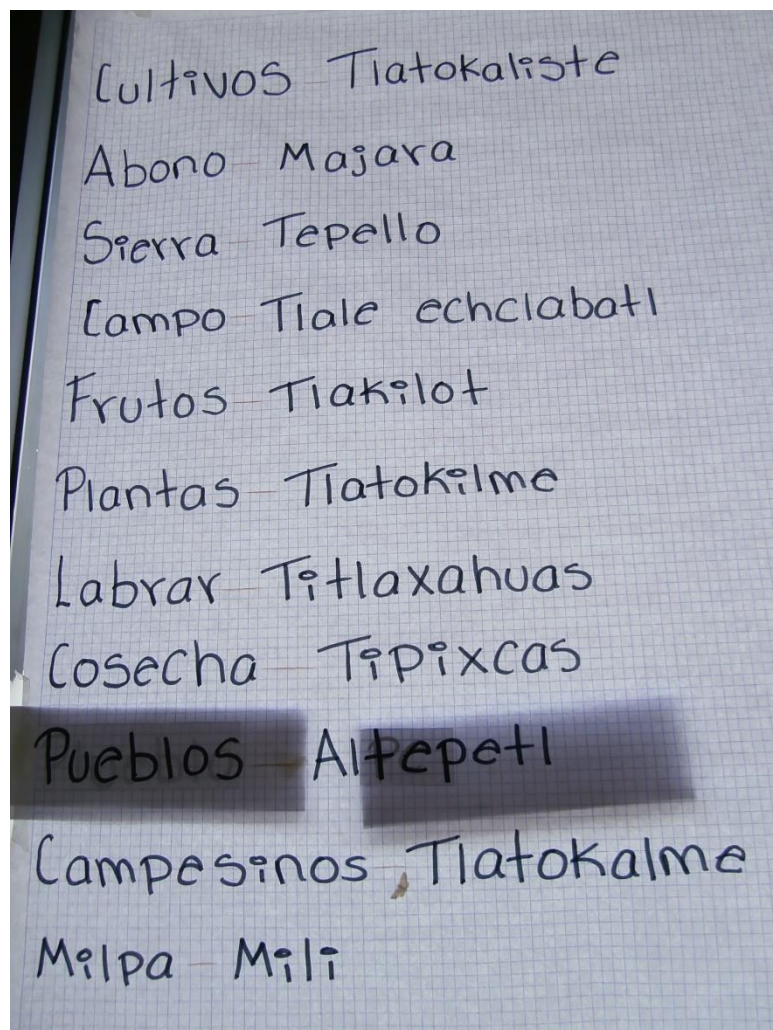 Cultivos Tlatokaliste
Abono Majara
Sierra Tepello
Campo Tlale echclabatl
Frutos Tlakilot
Plantas Tlatokilme
Labrar Titlaxahuas
Cosecha Tipixcas
Pueblos Altepetl
Campesinos Tlatokalme
Milpa Mili